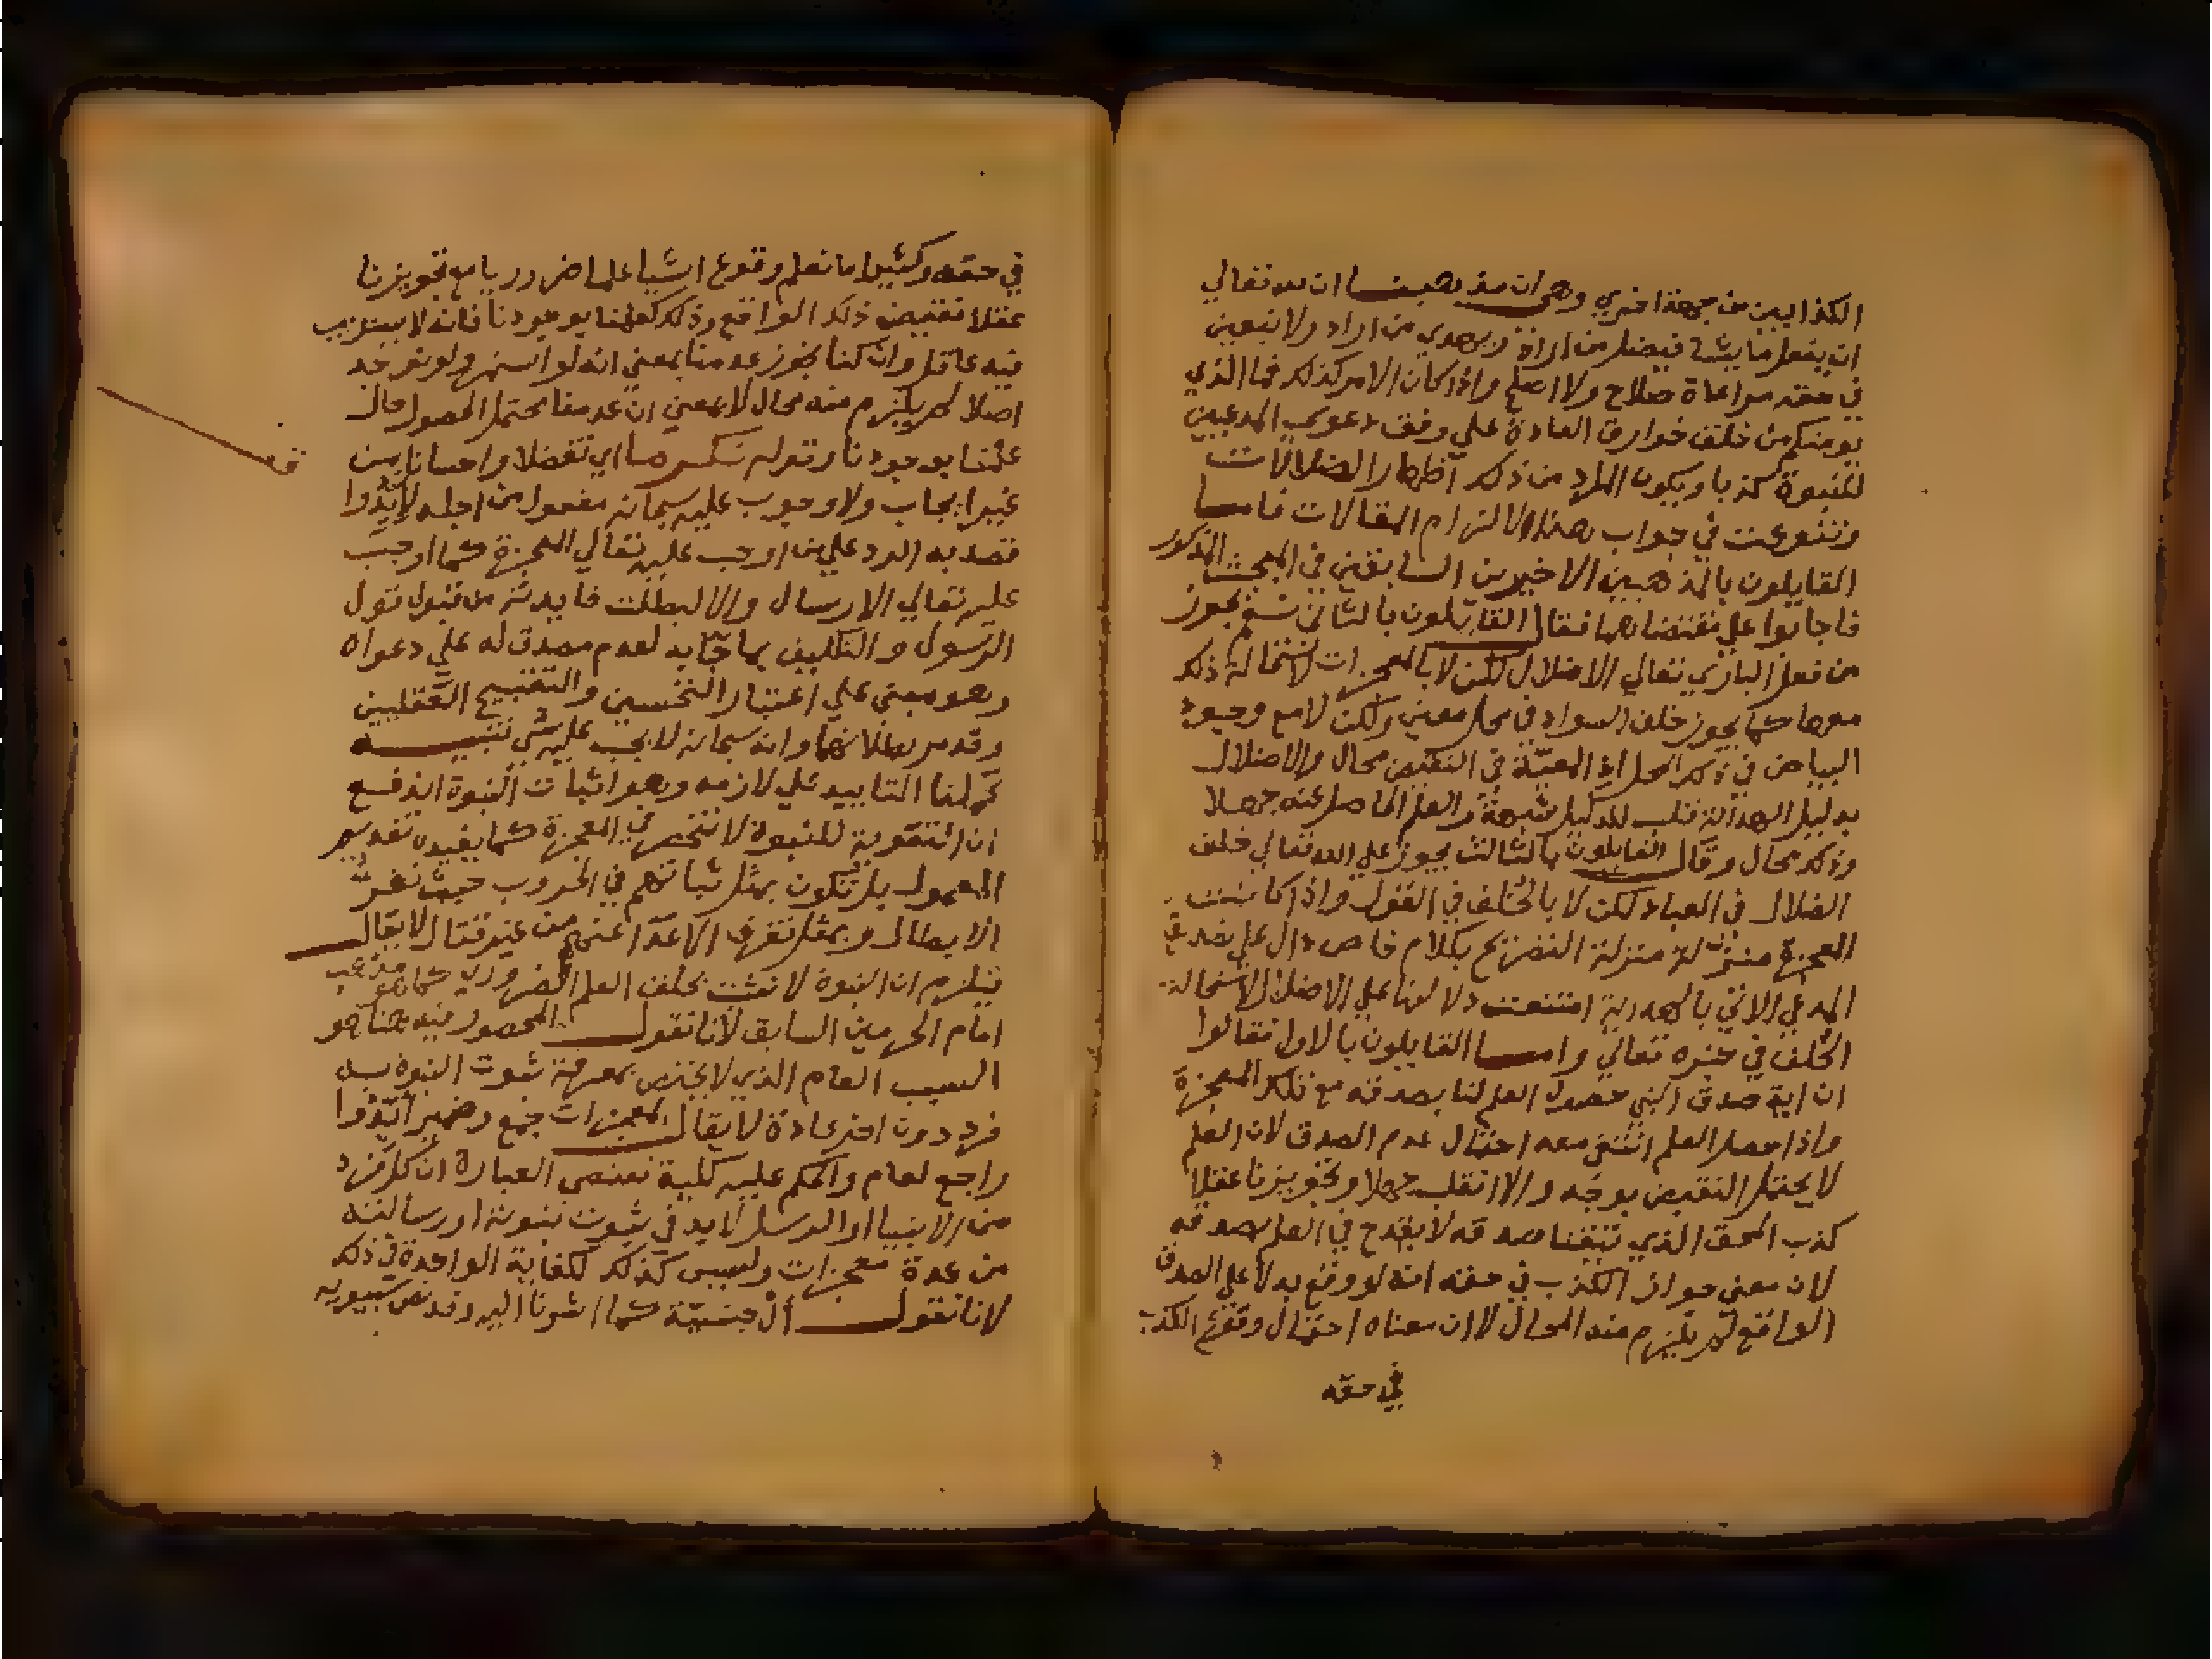 الكذابين من جهة اخري وهي ان مذهبنا ان لله تعالي
ان يفعل ما يشا فيضل من اراد ويهدي من اراد ولا يتعين
في حقه مراعاة صلاح ولا اصلح واذا كان الامر كذلك فما الذي
يومنكم من خلق خوارق العادة علي وفق دعوي المدعيين
للنبوة كذبا ويكون المراد من ذلك اظهار الضلالات
وتنوعت في جواب هذا الالتزام المقالات فامـا
القايلون بالمذهبين الاخيرين السابقين في المبحث المذكور
فاجابوا علي مقتضاهما فقال القايلون بالثاني يجوز
من فعل الباري تعالي الاضلال لكن لا بالمعجزات لاستحالة ذلك
معها كما يجوز خلق السواد في محل معين ولكن لا مع وجود
البياض في ذلك المحل اذ المعية في النقيضين محال والاضلال
بدليل الهداية قلب للدليل شبهة والعلم الحاصل عنه جهلا
وذلك محال وقال القايلون بالثالث يجوز علي الله تعالي خلق
الضلال في العباد لكن لا بالخلف في القول واذا كانت
المعجزة منزلة منزلة التصريح بكلام خاص دال علي تصديق
المدعي الاتي بالهداية امتنعت دلالتها علي الاضلال لاستحالة
الخلف في خبره تعالي وامـا القايلون بالاول فقالوا
ان اية صدق النبي حصول العلم لنا بصدقه مع تلك المعجزة
واذا حصل العلم انتفي معه احتمال عدم الصدق لان العلم
لا يحتمل النقيض بوجه والا انقلب جهلا وتجويزنا عقلا
كذب المحق الذي تيقنا صدقه لا يقدح في العلم بصدقه
لان معني جواز الكذب في حقه انه لو وقع بدلا علي الصدق
الواقع لم يلزم منه المحال لا ان معناه احتمال وقوع الكذب
في حقه
في حقه وكثيرا ما نعلم وقوع اشيا علما ضروريا مع تجويزنا
عقلا نقيض ذلك الواقع وذلك كعلمنا بوجودنا فانه لا يستريب
فيه عاقل وان كنا نجوز عدمنا بمعني انه لو استمر ولو نوجد
اصلا لم يلزم منه محال لا بمعني ان عدمنا محتمل الحصول حال
علمنا بوجودنا وقوله تكرما اي تفضلا واحسانا من
غير ايجاب ولا وجوب عليه سبحانه مفعول من اجله لايدوا
قصد به الرد علي من اوجب عليه تعالي المعجزة كما اوجب
عليه تعالي الارسال والا لبطلت فايدته من قبول قول
الرسول والتكليف بما جآ به لعدم مصدق له علي دعواه
وهو مبني علي اعتبار التحسين والتقبيح العقليين
وقد مر بطلانهما وانه سبحانه لا يجب عليه شي تنبيـه
حملنا التاييد علي لازمه وهو اثبات النبوة اندفع
ان التقوية للنبوة لا تنحصر في المعجزة كما يفيده تقديم
المعمول بل تكون بمثل ثباتهم في الحروب حيث تفر
الابطال وبمثل تفرق الاعدآ عنهم من غير قتال لا يقال
يلزم ان النبوة لا تثبت بخلق العلم الضروري كما هو مذهب
امام الحرمين السابق لانا نقول المحصور فيه هنا هو
السبب العام الذي لا يختص بمعرفة ثبوت النبوة به
فرد دون اخر عادة لا يقال المعجزات جمع وضمير ايدوا
راجع لعام والحكم عليه كلية فمقتضي العبارة ان كل فرد
من الانبيا او الرسل لا بد في ثبوت نبوته او رسالته
من عدة معجزات وليس كذلك لكفاية الواحدة في ذلك
لانا نقول أل جنسية كما اشرنا اليه وقد نص سيبويه